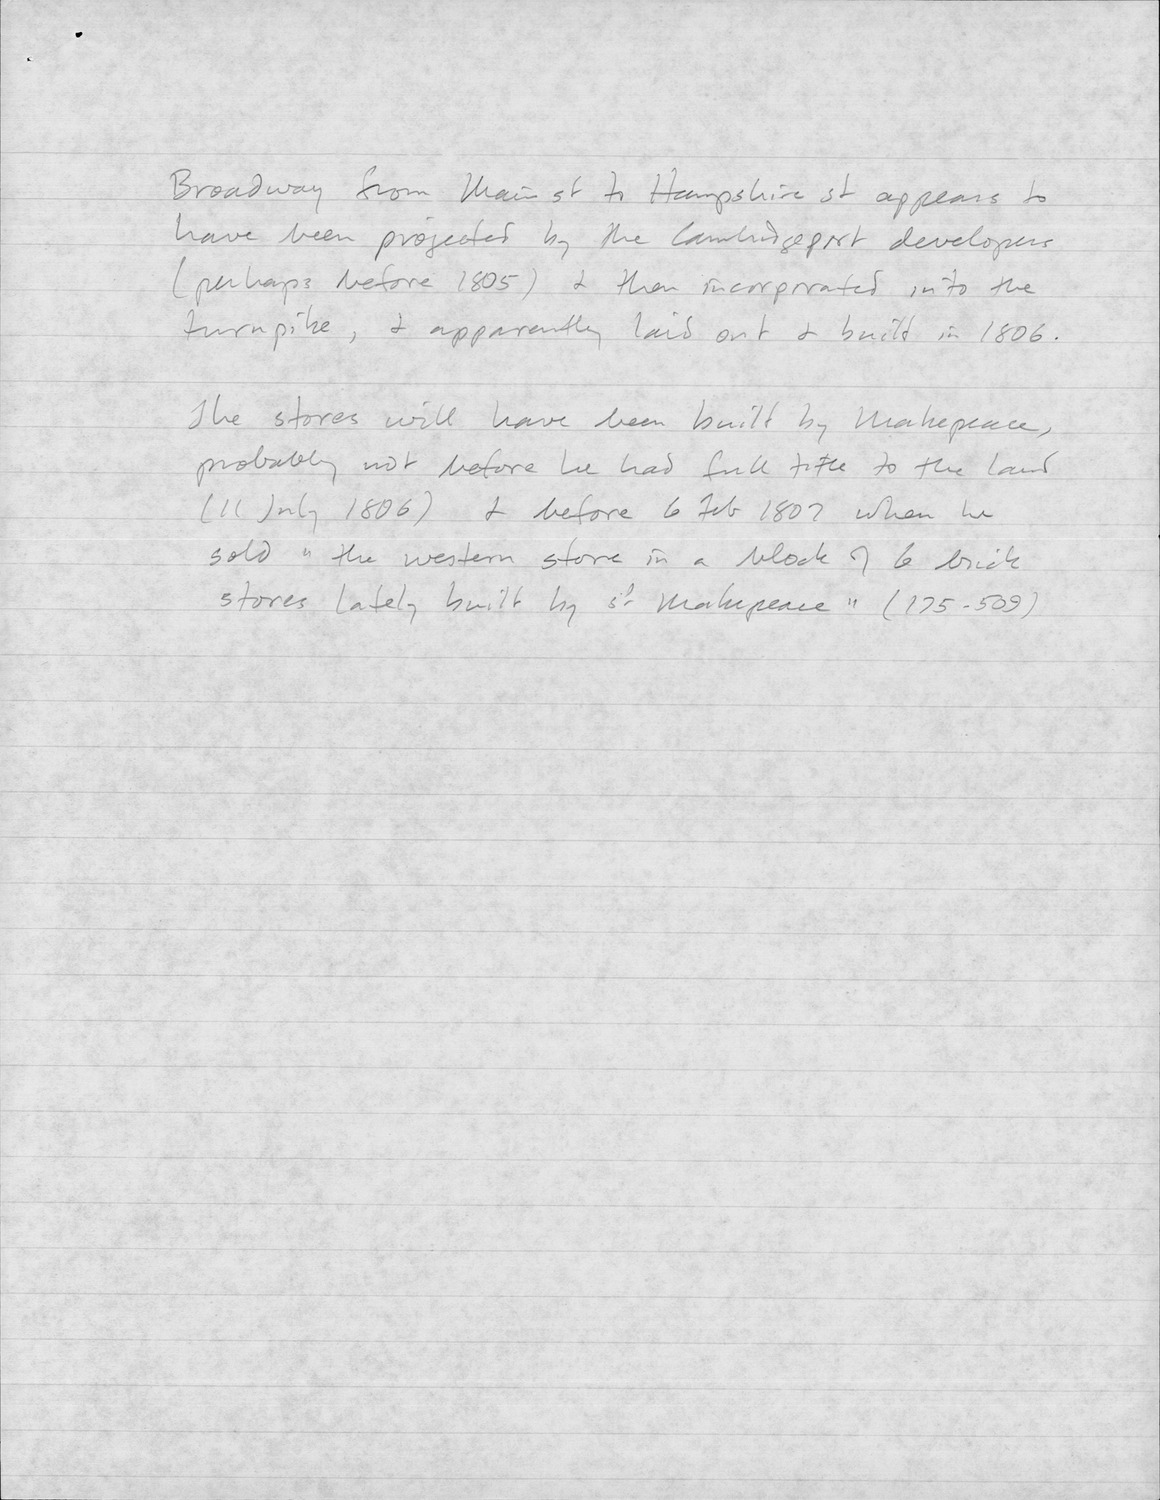 Broadway from Main st to Hampshire st appears to
have been projected by the Cambridgeport developers
(perhaps before 1805) & then incorporated into the
turnpike, & apparently laid out & built in 1806.
The stores will have been built by Makepeace,
probably not before he had full title to the land
(11 July 1806) & before 6 Feb 1807 when he
sold "the western store in a block of 6 brick
stores lately built by sd Makepeace" (175-509)